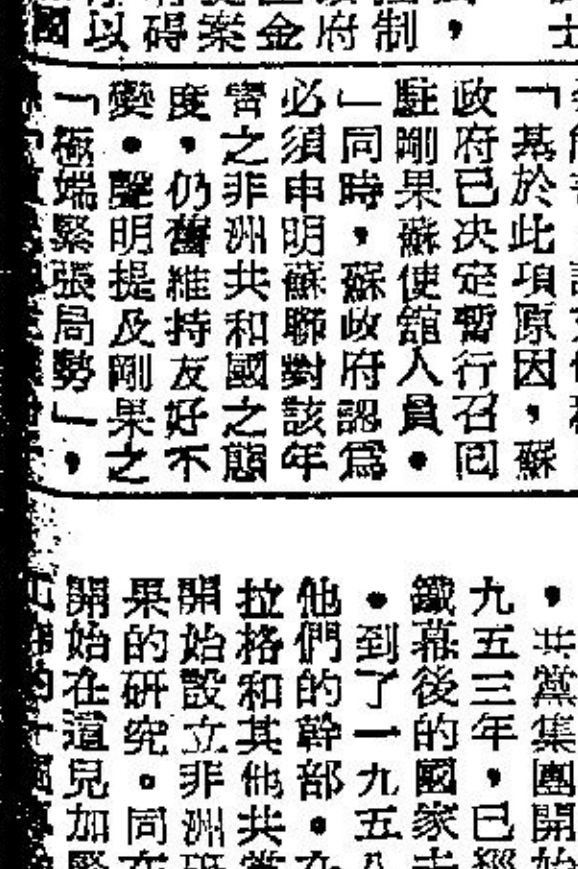 制，
府
金
案
碍
以
國
「基於此項原因，蘇
政府已决定暫行召囘
駐剛果蘇使館人員。
」同時，蘇政府認爲
必須申明蘇聯對該年
之非洲共和國之態
度，仍舊維持友好不
變。聲明提及剛果之
「極端緊張局勢」，
，共黨集團開始
九五三年，已經
鐵幕後的國家
。到了一九五八
他們的幹部。在
拉格和其他共黨
開始設立非洲研
果的研究。同在
開始在這兒加緊